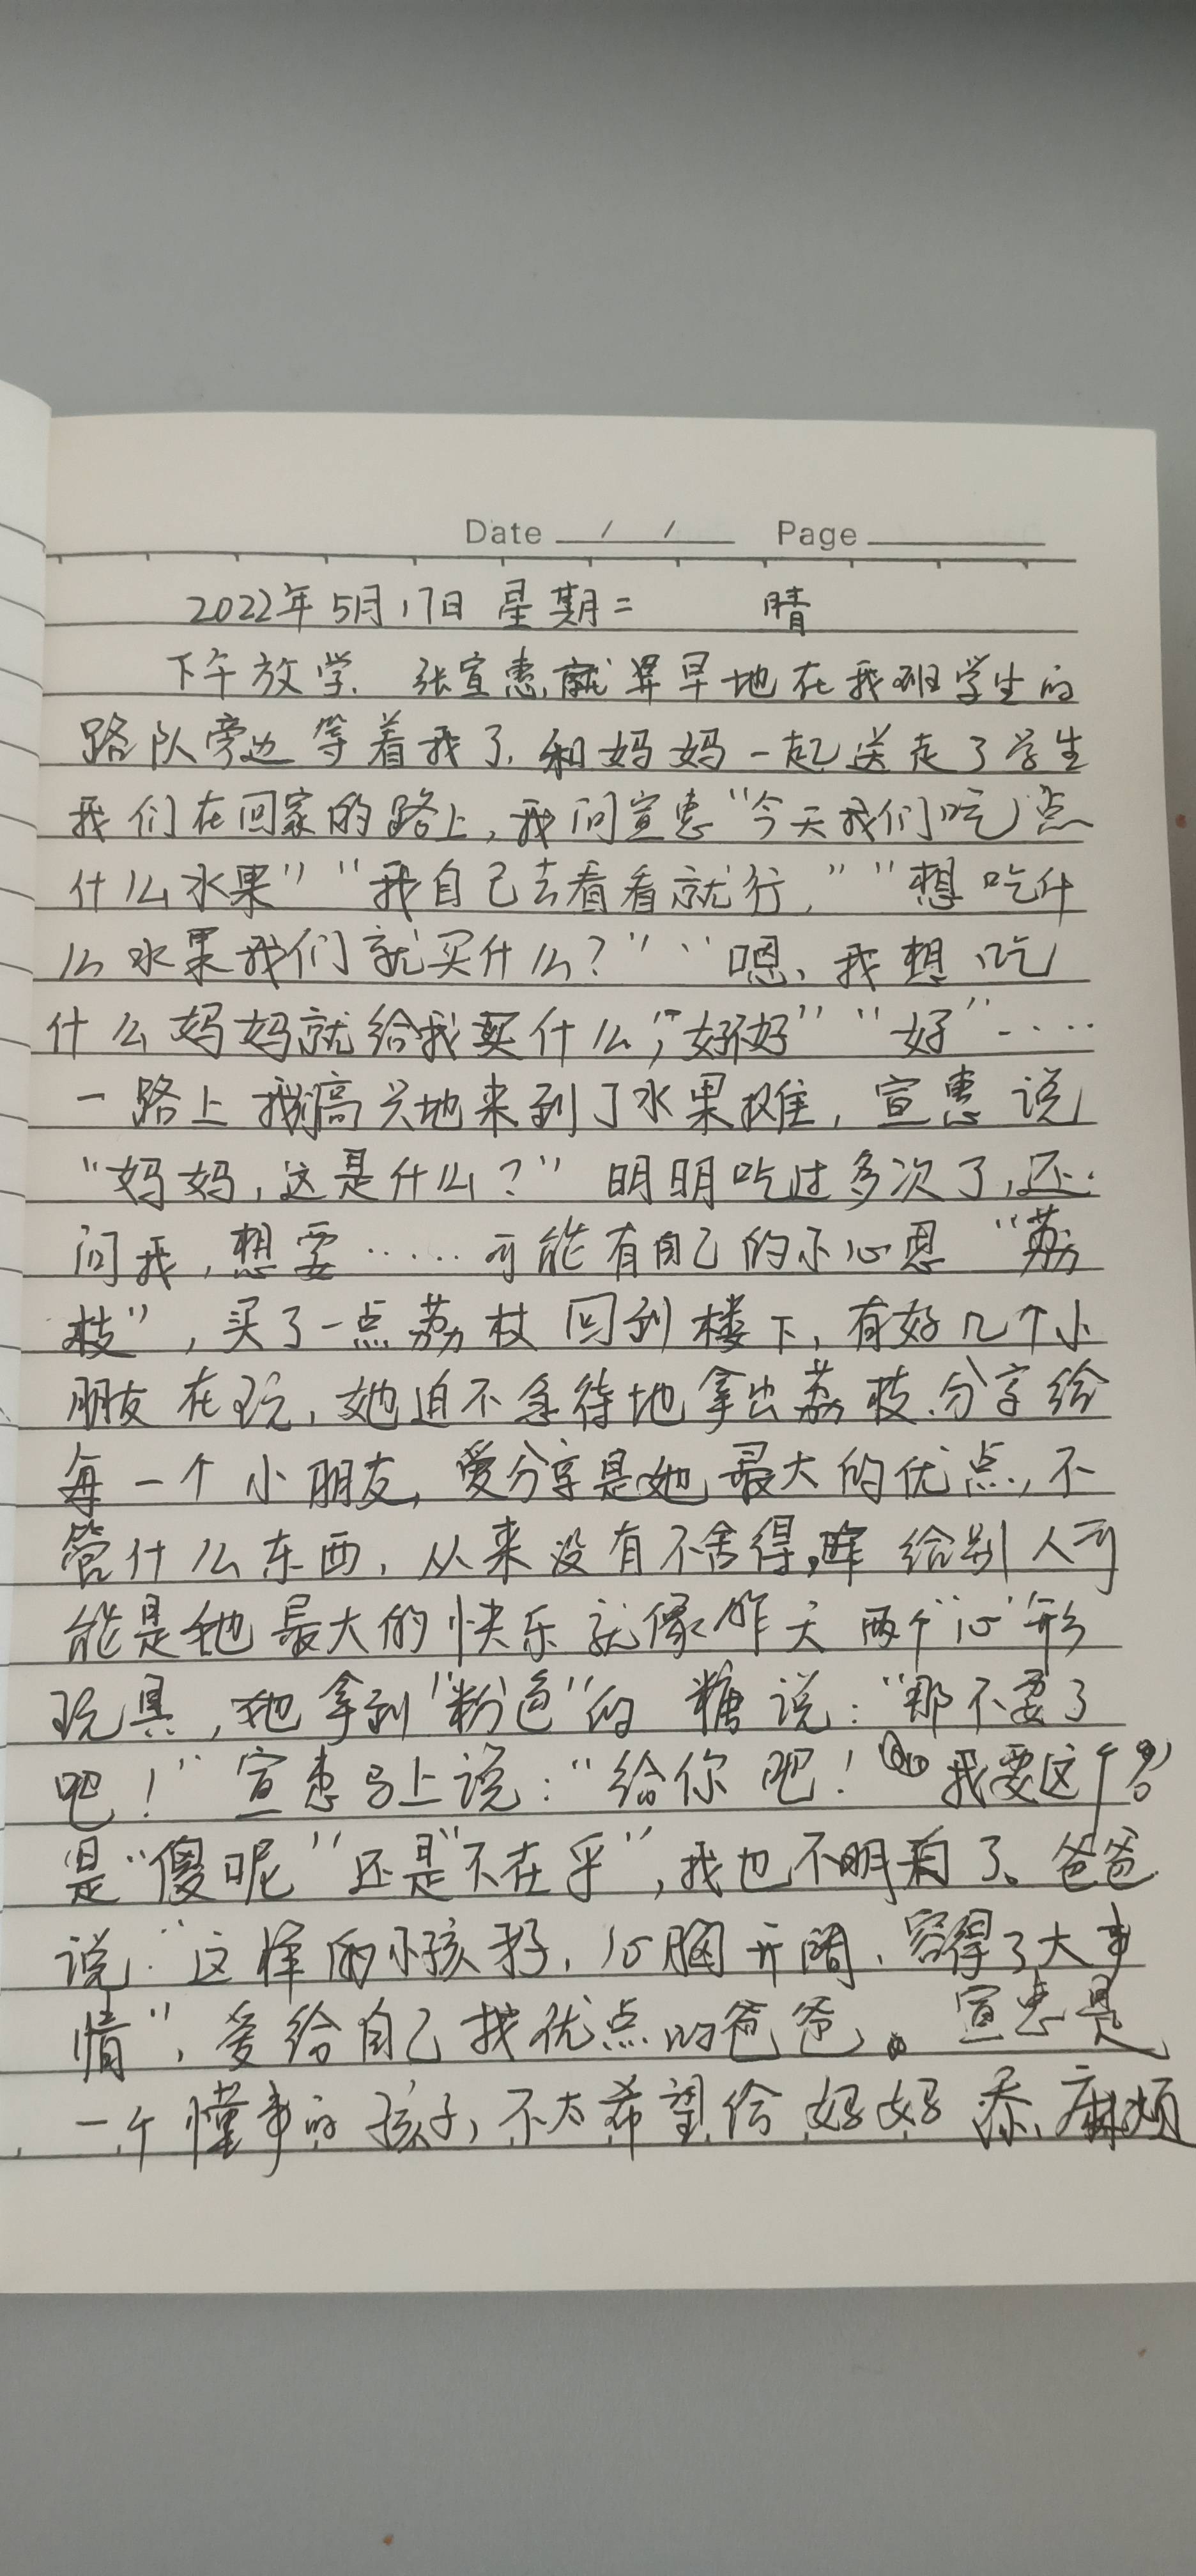 Date / / Page
2022年5月17日 星期二 晴
下午放学.张宣惠,就早早地在我班学生的
路队旁边等着我了,和妈妈一起送走了学生
我们在回家的路上,我问宣惠“今天我们吃点
什么水果”“我自己去看看就行,”“想吃什
么水果我们就买什么?”“嗯、我想吃
什么妈妈就给我买什么,”“好好”“好”·····
一路上我高兴地来到了水果摊,宣惠说
“妈妈,这是什么?”明明吃过多次了,还
问我,想要······可能有自己的小心思“荔
枝”,买了一点荔枝回到楼下,有好几个小
朋友在玩,她迫不急待地拿出荔枝.分享给
每一个小朋友,爱分享是她最大的优点,不
管什么东西,从来没有不舍得, 给别人可
能是她最大的快乐就像昨天两个“心”形
玩具,她拿到“粉色”的 糖说:“那不要了
吧!”宣惠马上说:“给你吧! 我要这个
是“傻呢”还是“不在乎”,我也不明白了。爸爸
说:“这样的小孩子,心胸开阔、容得了大事
情”,爱给自己找优点的爸爸。宣惠是
一个懂事的孩子,不太希望给妈妈添麻烦